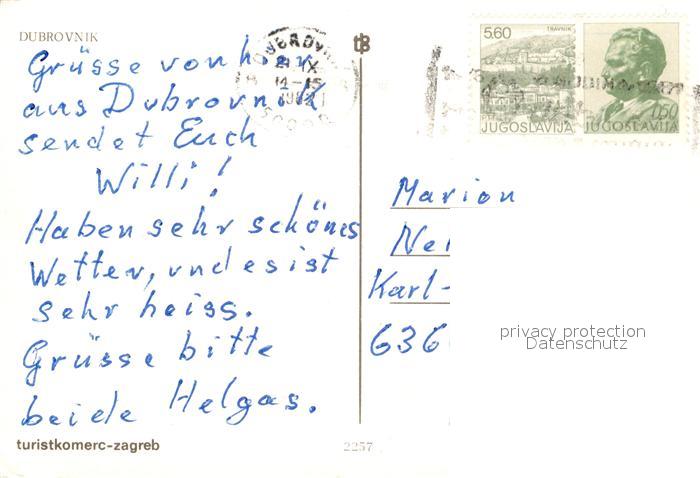 DUBROVNIK
Grüsse von hier
aus Dubrovnik
sendet Euch
Willi!
Haben sehr schönes
Wetter, und es ist
sehr heiss.
Grüsse bitte
beide Helgas.
turistkomerc-zagreb
2257
5.60
TRAVNIK
JUGOSLAVIJA
0.50
JUGOSLAVIJA
Marion
Karl-
636
privacy protection
Datenschutz